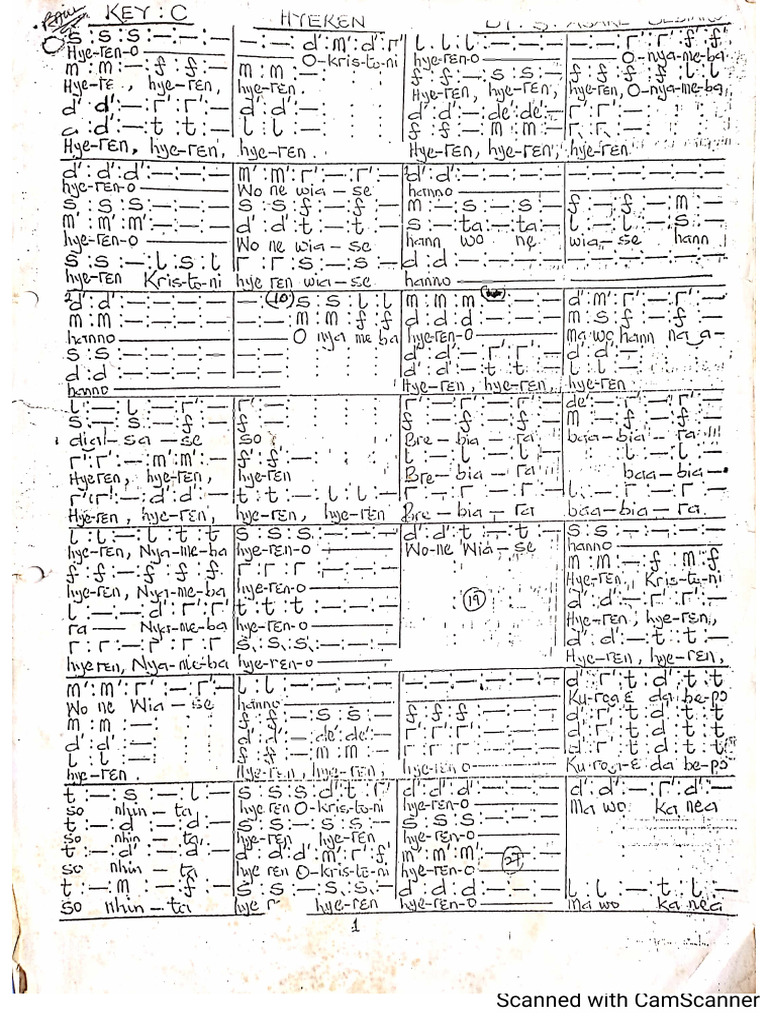 KEY: C HYEREN BY: S.
S : S : S : — : — : — — : — : d' : m' : d' : r' l : l : l : — : — : — — : — : r' : r' : f : f'
Hye-ren-o O-kris-to-ni hye-ren-o O-nya-me-ba
m : m : — : f : f : — m : m : — f : f : — : s : s : — f : f : f : f : l : l
Hye-re, hye-ren, hye-ren. Hye-ren, hye-ren, hye-ren, O-nya-me-ba
d' : d' : — : r' : r' : — d' : d' : — d' : d' : — : de' : de' : — r' : r' : —
d : d : — : t : t : — l : l : — f : f : — : m : m : — r : r : —
Hye-ren, hye-ren, hye-ren. Hye-ren, hye-ren, hye-ren.
d' : d' : d' : — : — : — m' : m' : r' : — : r' : — d' : d' : — : — : — : — — : — : — : — : — : —
hye-ren-o Wo ne wia-se hanno
S : S : S : — : — : — S : S : f : — : f : — m : — : s : — : s : — f : — : f : — : m : —
m' : m' : m' : — : — : — d' : d' : t : — : t : — s : — : ta : — : ta : — l : — : l : — : s : —
hye-ren-o Wo ne wia-se hann wo ne wia-se hann
S : S : — : l : s : l r : r : s : — : s : — d : d : — : — : — : — — : — : — : — : — : —
hye-ren Kris-to-ni hye ren wia-se hanno
d' : d' : — : — : — : — — (10) : s : s : l : l m : m : m : — : — : — d' : m' : r' : — : r' : —
m : m : — : — : — : — — : m : m : f : f d : d : d : — : — : — m : s : f : — : f : —
hanno O nya me ba hye-ren-o ma wo hann na a-
S : S : — : — : — : — d' : d' : — : r' : r' : — d' : d' : —
d : d : — : — : — : — d : d : — : t : t : — l : l : —
hanno Hye-ren, hye-ren, hye-ren.
l : — : l : — : r' : — r' : — r' : — : r' : — : r' : — de' : — : r' : — : r' : —
S : — : S : — : f : — f : — f : — : f : — : f : — m : — : f : — : f : —
digl-sa-se so Bre-bia-ra baa-bia-ra
r' : r' : — : m' : m' : — f' : f' : — t : — : l : — : l : — l : — : l : —
Hyeren, hye-ren, hye-ren Bre-bia-ra baa-bia-
r' : r' : — : d' : d' : — t : t : — : l : l : — r : — : r : — : r : — l : — : r : — : r : —
Hye-ren, hye-ren, hye-ren, hye-ren Bre-bia-ra baa-bia-ra
l : l : — : l : t : t S : S : S : — : — : — d' : d' : t : — : t : — S : S : — : — : — : —
hye-ren, Nya-me-ba hye-ren-o Wo-ne Wia-se hanno
f : f : — : f : f : f — : — : — : — : — : — m : m : — : f : m : f
hye-ren, Nya-me-ba hye-ren-o Hye-ren, Kris-to-ni
l : — : — : d' : r' : r' t : t : t : — : — : — (19) d' : d' : — : r' : r' : —
ra — Nya-me-ba hye-ren-o Hye-ren, hye-ren,
r : r : — : r : r : r S : S : S : — : — : — d' : d' : — : t : t : —
hyeren, Nya-me-ba hye-ren-o Hye-ren, hye-ren,
m' : m' : r' : — : r' : — l : l : — : — : — : — — : — : — : — : — : — d' : r' : t : d' : t : t
Wo ne Wia-se hanno Ku-ro-a-ɛ da be-pɔ
m : m : — f : f : — : s : s : — f : f : f : — : — : — d' : r' : t : d' : t : t
d' : d' : — d' : d' : — : de' : de' : — r' : r' : r' : — : — : — d' : r' : t : d' : t : t
l : l : — f : f : — : m : m : — r : r : r : — : — : — d' : r' : t : d' : t : t
hye-ren. Hye-ren, hye-ren, hye-ren o Ku-ro-a-ɛ da be-pɔ
t : — : s : — : l : — S : S : S : d' : t : r' d' : d' : d' : — : — : — d' : d' : — : r' : d' : —
so nhin-ta hye ren O-kris-to-ni hye-ren-o ma wo ka nea
t : — : d : — : d : — S : S : — : S : S : — S : S : S : — : — : —
so nhin-ta hye-ren hye-ren hye-ren-o
t : — : d' : — : d' : — d' : d' : d' : m' : r' : f' m' : m' : m' : — : — : —
so nhin-ta hye ren O-kris-to-ni hye-ren-o (27)
t : — : m : — : f : — S : S : — : S : S : — d : d : d : — : — : — l : l : — : t : l : —
so nhin-ta hye-ren hye-ren-o ma wo ka nea
1
Scanned with CamScanner